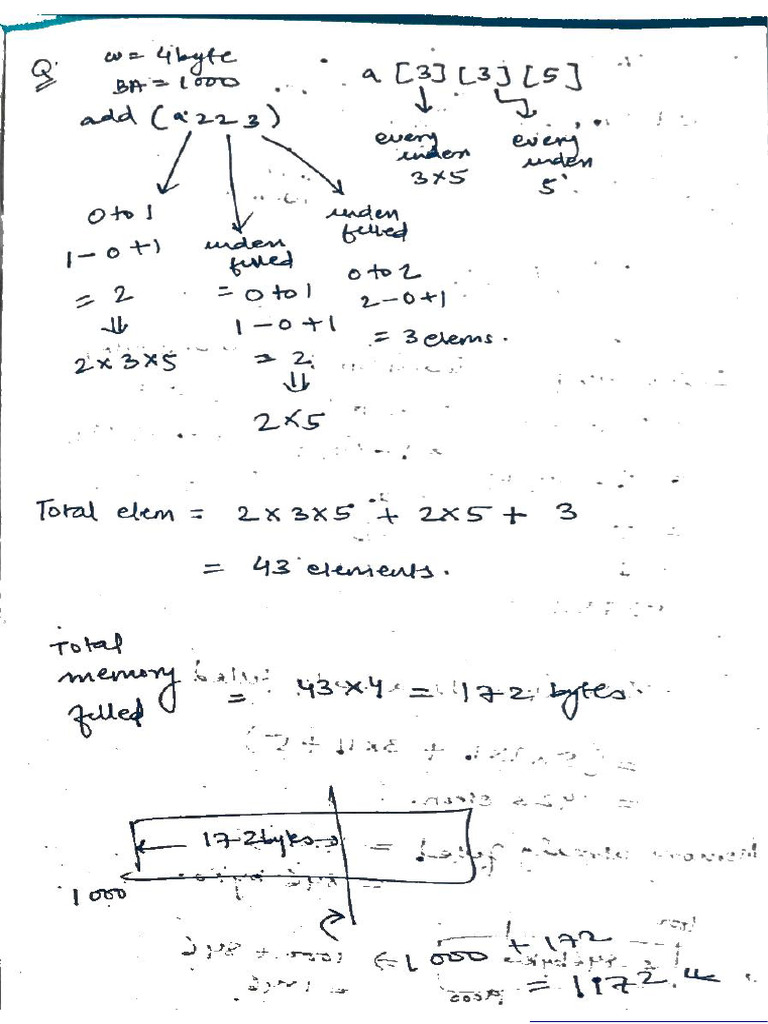 Q.
w = 4 byte
BA = 1000
add (a 2 2 3)
a [3] [3] [5]
every
index
3×5
every
index
5
0 to 1
1 - 0 + 1
= 2
⇓
2 × 3 × 5
index
filled
= 0 to 1
1 - 0 + 1
= 2
⇓
2 × 5
index
filled
0 to 2
2 - 0 + 1
= 3 elems.
Total elem = 2 × 3 × 5 + 2 × 5 + 3
= 43 elements.
Total
memory
filled = 43 × 4 = 172 bytes
172 bytes
1000
⇒ 1000 + 172
= 1172